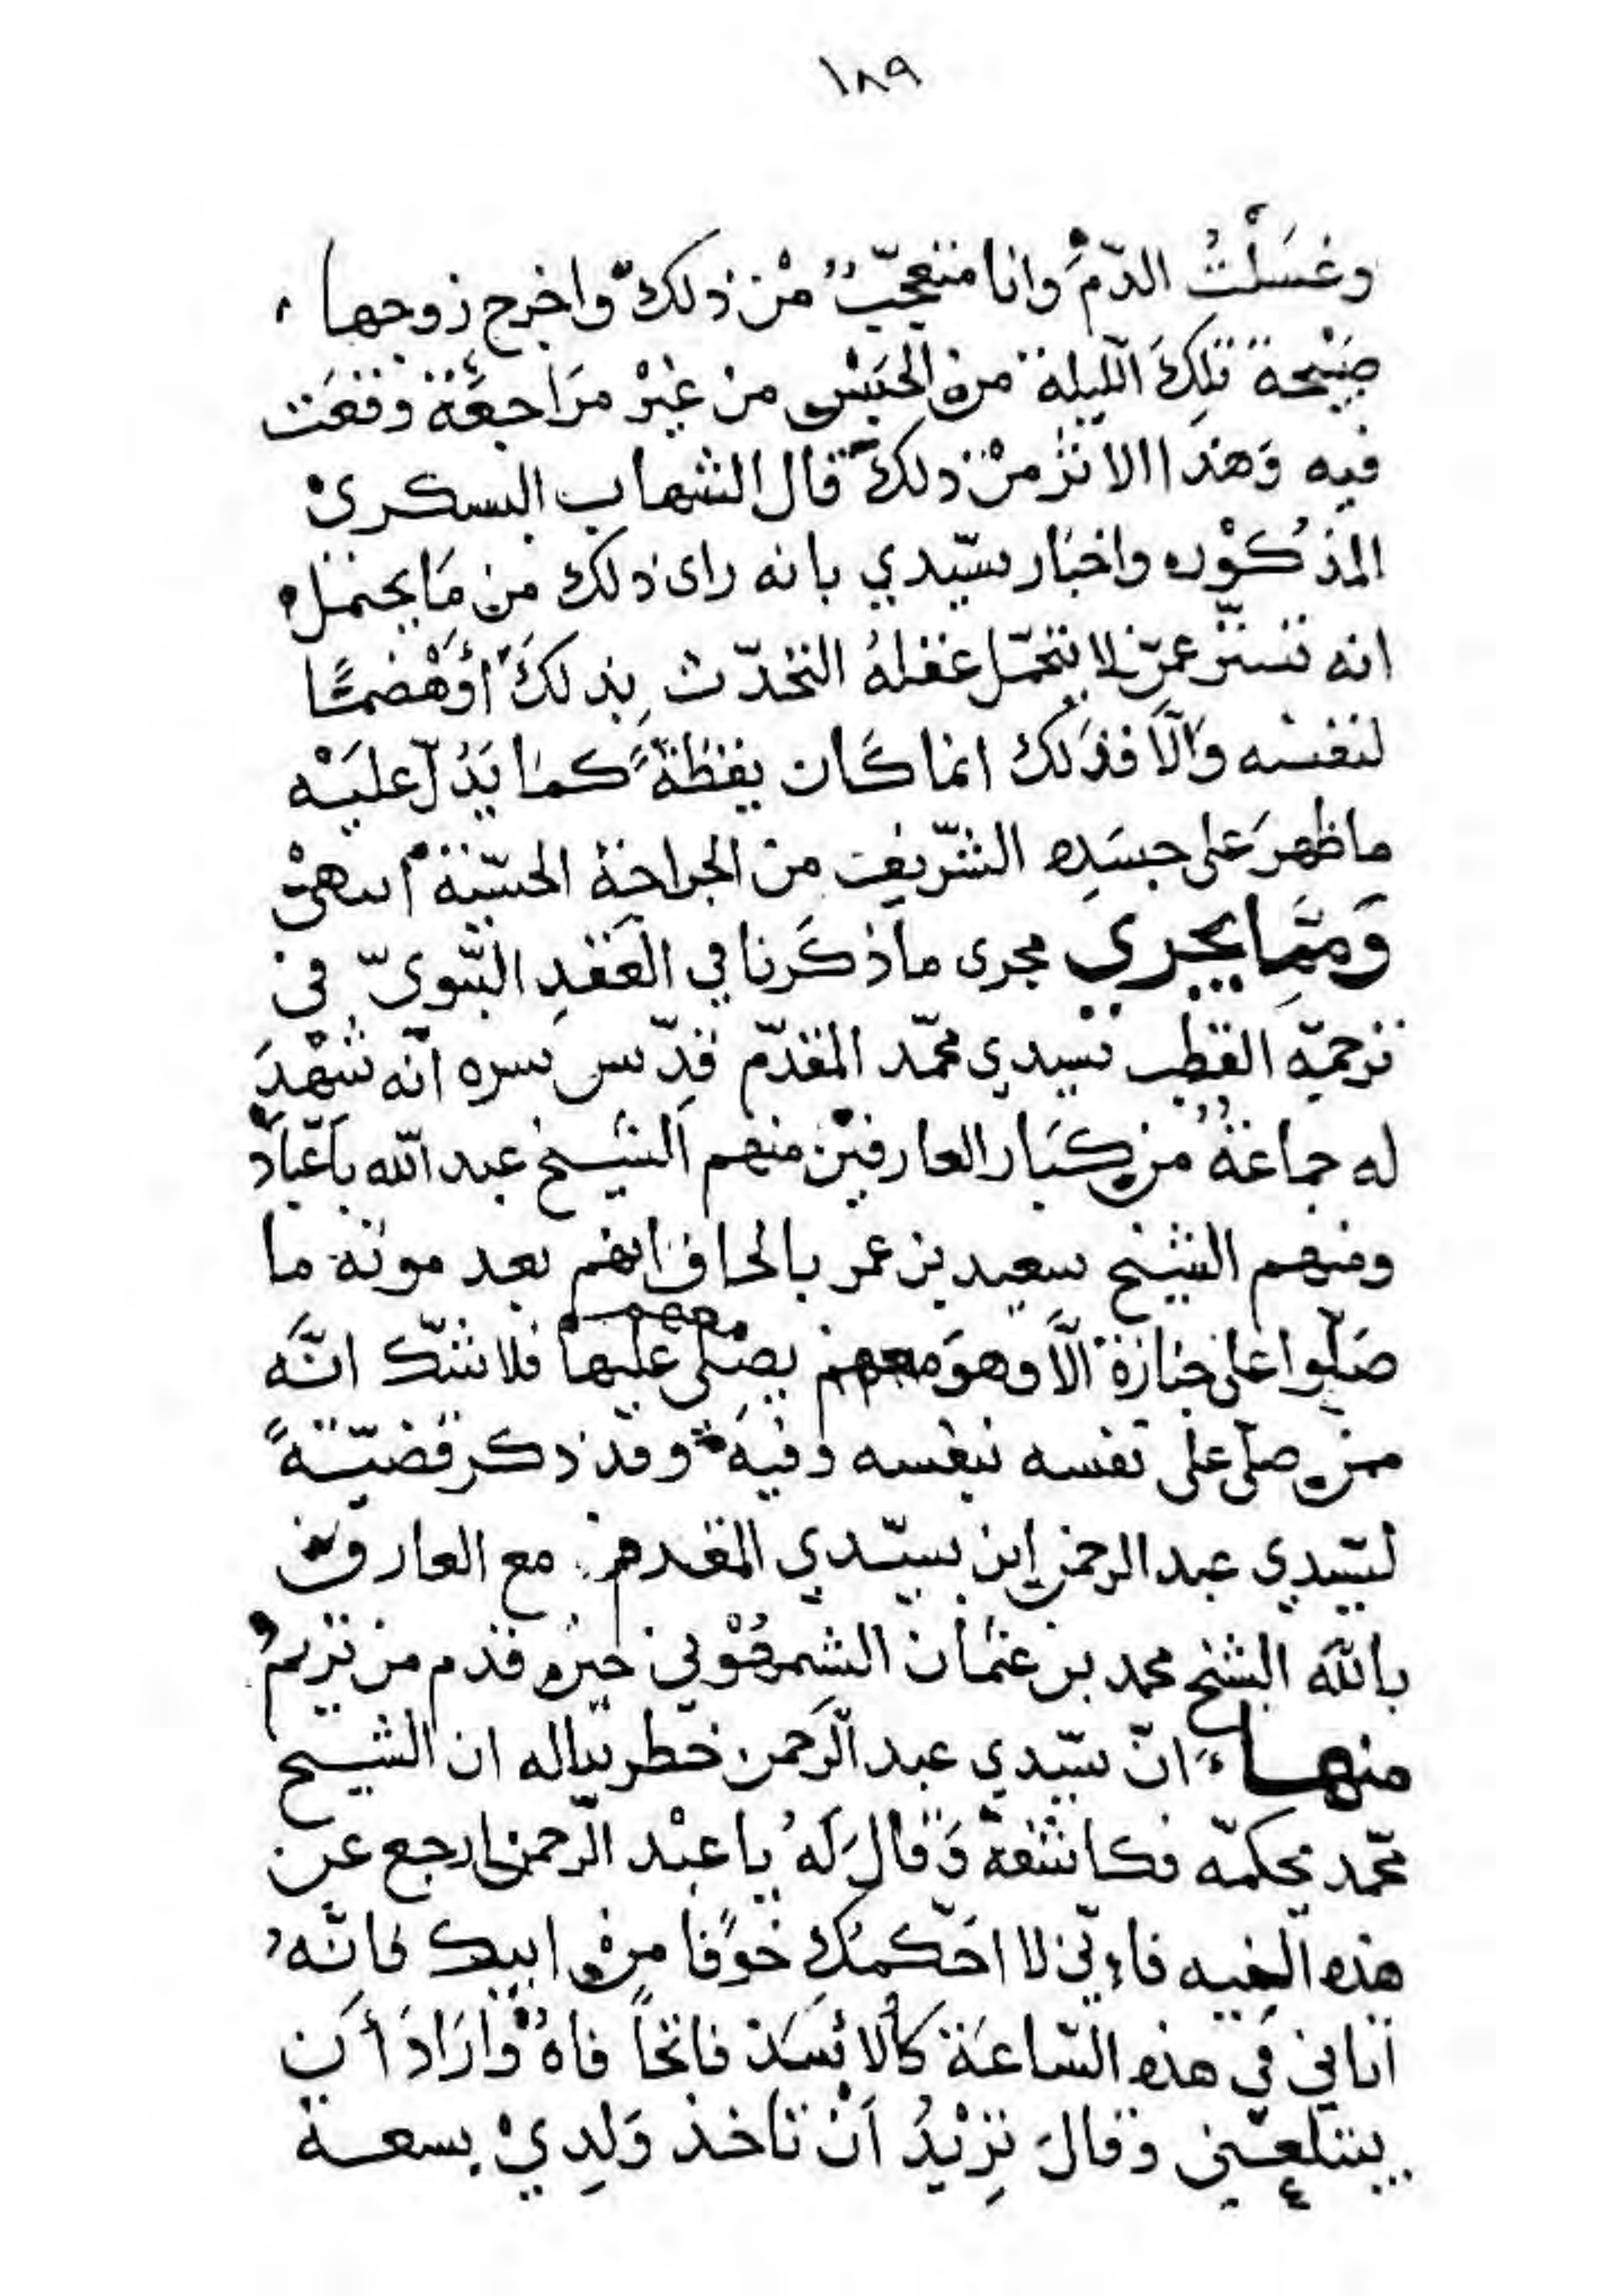 ١٨٩
وغسَلْتُ الدّمَ وانا متعجّبٌ مْن ذلك واخرج زوجها
صَبْيحة تلِكَ اللّيلة من الحَبْس من غيْر مرَاجعَة وقعَت
فيه وَهذا الاثر مْن ذلك قال الشهاب البسكريْ
المذكوْر واخبار سيّدي بانه راى ذلك منَامَا يحتمل
انه تستّر عمّن لا يتحمّل عقلهُ التحدّث بِذلكَ أوْهضمًا
لنفسه وَالّا فذلك انما كان يقظةً كما يَدُلّ عليَه
ما ظهرَ على جسَدِه الشّريف من الجراحة الحسّية انتهى
وَممَّا يجري مجرى ما ذكَرنا في العَقدِ النّبويّ في
ترجمة القطب سيدي محمّد المقدّم قدّس سره انّه شهْدَ
له جماعةُ من كبَار العارفيْن منهم الشيخ عبد الله باعَبّاد
ومنهم الشيخ سعيد بن عمر بالحاف انهم بعد موته ما
صَلّوا على جنازة الّا وهوَ معهم يصْلى عليهْا فلا شّك انَّه
ممن صلّى على نفسه بنفسه وفيه وقد ذكر قضيّةً
لسّيدي عبد الرحمن ابن سيّدي المقدم مع العارف
بالله الشيخ محمد بن عثمان حين قدم من تريم
منها انّ سيّدي عبد الرّحمن خطر بباله ان الشيخ
محّمد يحكمّه فكاشفة وَقال لَهُ يا عبْد الرّحمن ارجع عن
هذه النّيه فاءنّي لا احَكّمك خوًفا منْ ابيك فانَّهُ
اتاني في هذه السّاعَة كالاسَد فاتحاً فاهُ وارَادَ أن
يبتلعني وقالَ تِرْيدُ اَنْ تاخذ وَلِديْ بسعة